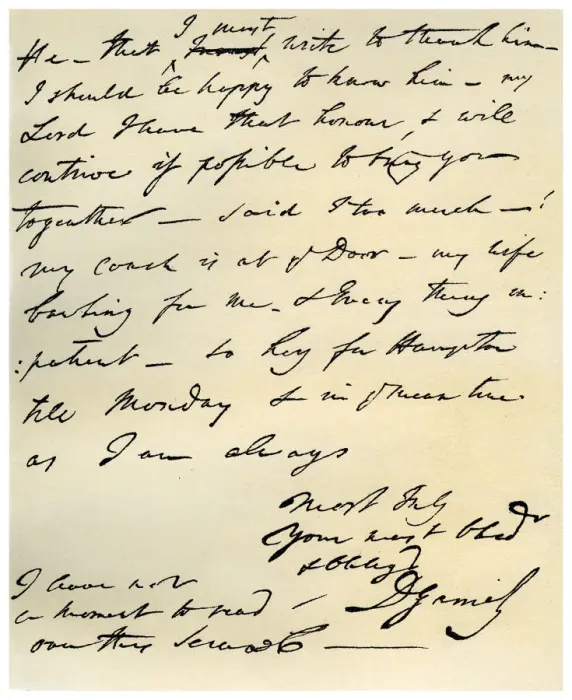 I must
He - that I must write to thank him -
I should be happy to know him - my
Lord I have that honour, & will
contrive if possible to bring you
together - said I too much - !
my coach is at ye Door - my wife
bawling for me - & Every thing im:
:patient - so hey for Hampton
till Monday & in ye mean time
as I am always
Most truly
Your most Obedr
& Oblig'd
D Garrick
I have not
a moment to read /
over this Scrawl